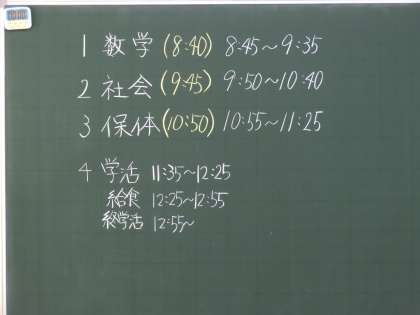 1 数学 (8:40) 8:45~9:35
2 社会 (9:45) 9:50~10:40
3 保体 (10:50) 10:55~11:25
4 学活 11:35~12:25
給食 12:25~12:55
終学活 12:55~